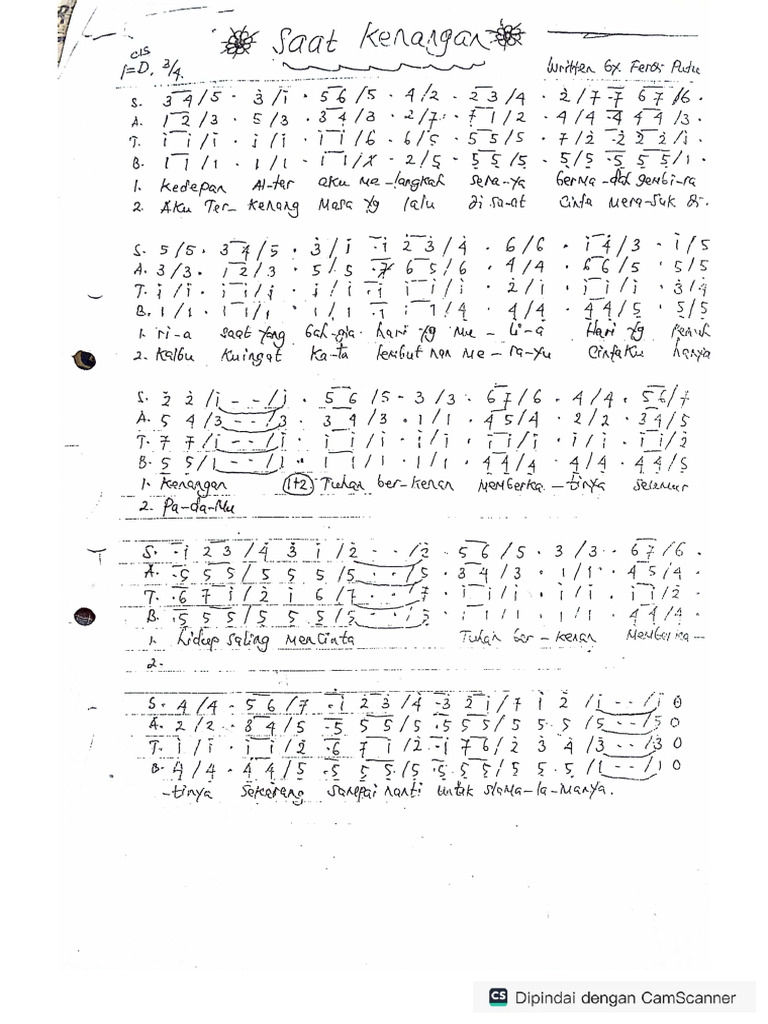 Saat Kenangan
cis
1=D. 3/4. Written by. Ferdi Putu
S. 3 4 / 5 . 3 / i . 5 6 / 5 . 4 / 2 . 2 3 / 4 . 2 / 7 . 7 6 7 / 6 .
A. 1 2 / 3 . 5 / 3 . 3 4 / 3 . 2 / 7 . 7 1 / 2 . 4 / 4 . 4 4 4 / 3 .
T. i i / i . i / i . i i / 6 . 6 / 5 . 5 5 / 5 . 7 / 2 . 2 2 2 / i .
B. 1 1 / 1 . 1 / 1 . 1 1 / . 2 / 5 . 5 5 / 5 . 5 / 5 . 5 5 5 / 1 .
1. Kedepan Al-tar aku me-langkah sera-ya berma-dah gembi-ra
2. Aku Ter-kenang Masa yg lalu di sa-at Cinta mera-suk di.
S. 5 / 5 . 3 4 / 5 . 3 / i . i 2 3 / 4 . 6 / 6 . i 4 / 3 . i / 5
A. 3 / 3 . 1 2 / 3 . 5 / 5 . 7 6 5 / 6 . 4 / 4 . 6 6 / 5 . 5 / 5
T. i / i . i i / i . i / i . i i i / i . 2 / i . i i / i . 3 / 4
B. 1 / 1 . 1 1 / 1 . 1 / 1 . 1 1 1 / 4 . 4 / 4 . 4 4 / 5 . 5 / 5
1. ri-a saat yang bah-gia hari yg mu-li-a Hari yg penuh
2. Kalbu Kuingat Ka-ta lembut nan me-ra-yu Cintaku hanya
S. 2 2 / i - - / i . 5 6 / 5 . 3 / 3 . 6 7 / 6 . 4 / 4 . 5 6 / 7
A. 5 4 / 3 - - / 3 . 3 4 / 3 . 1 / 1 . 4 5 / 4 . 2 / 2 . 3 4 / 5
T. 7 7 / i - - / i . i i / i . i / i . i i / i . i / i . i i / 2
B. 5 5 / 1 - - / 1 . 1 1 / 1 . 1 / 1 . 4 4 / 4 . 4 / 4 . 4 4 / 5
1. Kenangan 1+2 Tuhan ber-kenan memberka-tinya seumur
2. Pa-da-Mu
S. . i 2 3 / 4 3 i / 2 . . / 2 . 5 6 / 5 . 3 / 3 . 6 7 / 6 .
A. . 5 5 5 / 5 5 5 / 5 . . / 5 . 3 4 / 3 . 1 / 1 . 4 5 / 4 .
T. . 6 7 i / 2 i 6 / 7 . . / 7 . i i / i . i / i . i i / 2 .
B. . 5 5 5 / 5 5 5 / 5 . . / 5 . 1 1 / 1 . 1 / 1 . 4 4 / 4 .
1. hidup saling mencinta Tuhan ber-kenan Memberka-
2.
S. 4 / 4 . 5 6 / 7 . i 2 3 / 4 . 3 2 i / 7 i 2 / i - - / i 0
A. 2 / 2 . 3 4 / 5 . 5 5 5 / 5 . 5 5 5 / 5 5 5 / 5 - - / 5 0
T. i / i . i i / 2 . 6 7 i / 2 . i 7 6 / 2 3 4 / 3 - - / 3 0
B. 4 / 4 . 4 4 / 5 . 5 5 5 / 5 . 5 5 5 / 5 5 5 / 1 - - / 1 0
-tinya Sekarang sampai nanti untuk slama-la-manya.
CS Dipindai dengan CamScanner